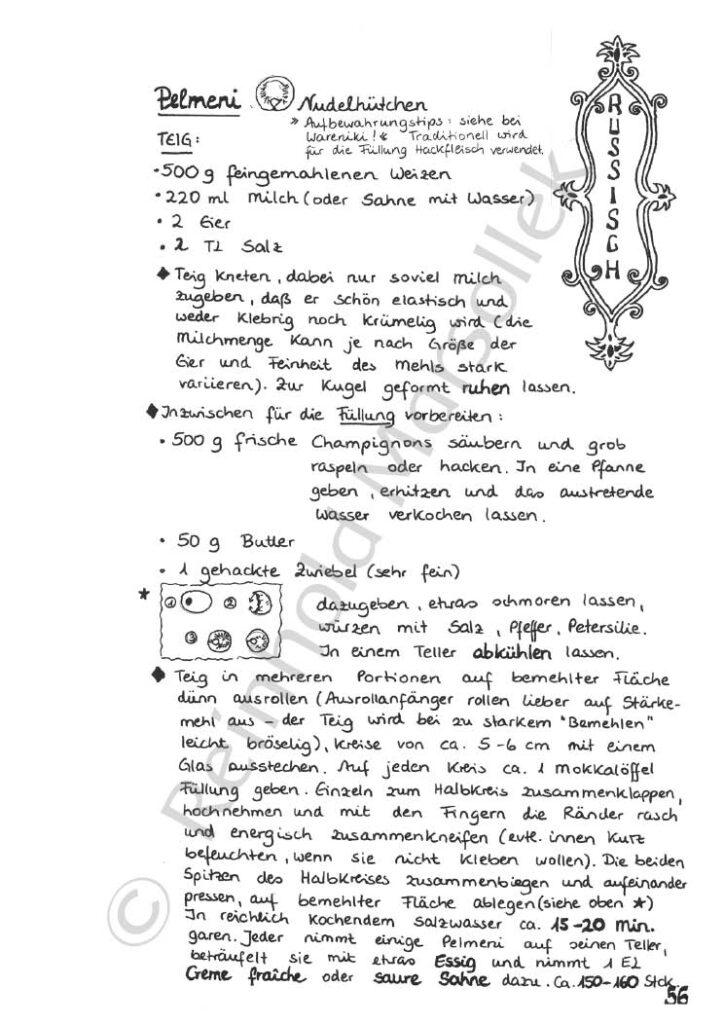 Pelmeni Nudelhütchen
RUSSISCH
» Aufbewahrungstips: siehe bei
Wareniki!« Traditionell wird
für die Füllung Hackfleisch verwendet.
TEIG:
• 500 g feingemahlenen Weizen
• 220 ml Milch (oder Sahne mit Wasser)
• 2 Eier
• 2 TL Salz
◆ Teig kneten, dabei nur soviel Milch
zugeben, daß er schön elastisch und
weder klebrig noch krümelig wird (die
Milchmenge kann je nach Größe der
Eier und Feinheit des Mehls stark
variieren). Zur Kugel geformt ruhen lassen.
◆ Inzwischen für die Füllung vorbereiten:
• 500 g frische Champignons säubern und grob
raspeln oder hacken. In eine Pfanne
geben, erhitzen und das austretende
Wasser verkochen lassen.
• 50 g Butter
• 1 gehackte Zwiebel (sehr fein)
* ① ② ③
dazugeben, etwas schmoren lassen,
würzen mit Salz, Pfeffer, Petersilie.
In einem Teller abkühlen lassen.
◆ Teig in mehreren Portionen auf bemehlter Fläche
dünn ausrollen (Ausrollanfänger rollen lieber auf Stärke-
mehl aus – der Teig wird bei zu starkem "Bemehlen"
leicht bröselig), Kreise von ca. 5-6 cm mit einem
Glas ausstechen. Auf jeden Kreis ca. 1 Mokkalöffel
Füllung geben. Einzeln zum Halbkreis zusammenklappen,
hochnehmen und mit den Fingern die Ränder rasch
und energisch zusammenkneifen (evtl. innen kurz
befeuchten, wenn sie nicht kleben wollen). Die beiden
Spitzen des Halbkreises zusammenbiegen und aufeinander
pressen, auf bemehlter Fläche ablegen (siehe oben ★)
In reichlich kochendem Salzwasser ca. 15-20 min.
garen. Jeder nimmt einige Pelmeni auf seinen Teller,
beträufelt sie mit etwas Essig und nimmt 1 EL
Creme fraîche oder saure Sahne dazu. Ca. 150-160 Stck.
56
© Reinhold Marsollek